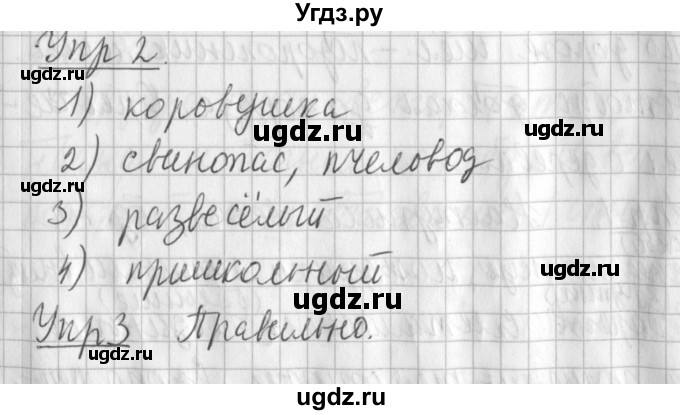 Угдз.ру
Упр 2.
ugdz.ru
ugdz.ru
1) коровушка
ugdz.ru
ugdz.ru
ugdz.ru
2) свинопас, пчеловод
3) развесёлый
ugdz.ru
4) пришкольный
ugdz.ru
ugdz.ru
ugdz.ru
Упр 3 Правильно.
ugdz.ru
ugdz.ru
ugdz.ru